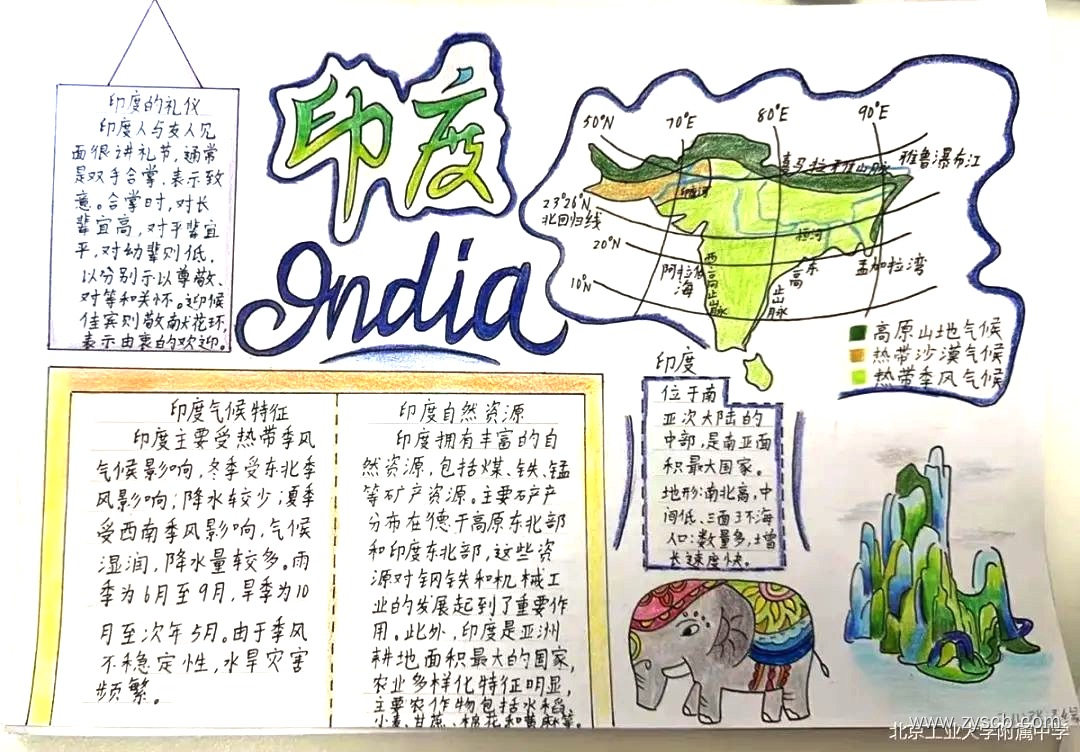 印度的礼仪
印度人与友人见
面很讲礼节,通常
是双手合掌,表示致
意。合掌时,对长
辈宜高,对平辈宜
平,对幼辈则低,
以分别示以尊敬、
对等和关怀。迎候
佳宾则敬献花环,
表示由衷的欢迎。
印度
India
50°N
70°E
80°E
90°E
喜马拉雅山脉
雅鲁瀑布江
印度河
23°26′N
北回归线
20°N
10°N
恒河
阿拉伯
海
西高止山脉
东高止山脉
孟加拉湾
高原山地气候
热带沙漠气候
热带季风气候
印度
位于南
亚次大陆的
中部,是南亚面
积最大国家。
地形:南北高,中
间低、三面环海
人口:数量多,增
长速度快。
印度气候特征
印度主要受热带季风
气候影响,冬季受东北季
风影响;降水较少;夏季
受西南季风影响,气候
湿润,降水量较多。雨
季为6月至9月,旱季为10
月至次年5月。由于季风
不稳定性,水旱灾害
频繁。
印度自然资源
印度拥有丰富的自
然资源,包括煤、铁、锰
等矿产资源。主要矿产
分布在德干高原东北部
和印度东北部,这些资
源对钢铁和机械工
业的发展起到了重要作
用。此外,印度是亚洲
耕地面积最大的国家,
农业多样化特征明显,
主要农作物包括水稻、
小麦、甘蔗、棉花和黄麻等。
www.zyscb.com
北京工业大学附属中学